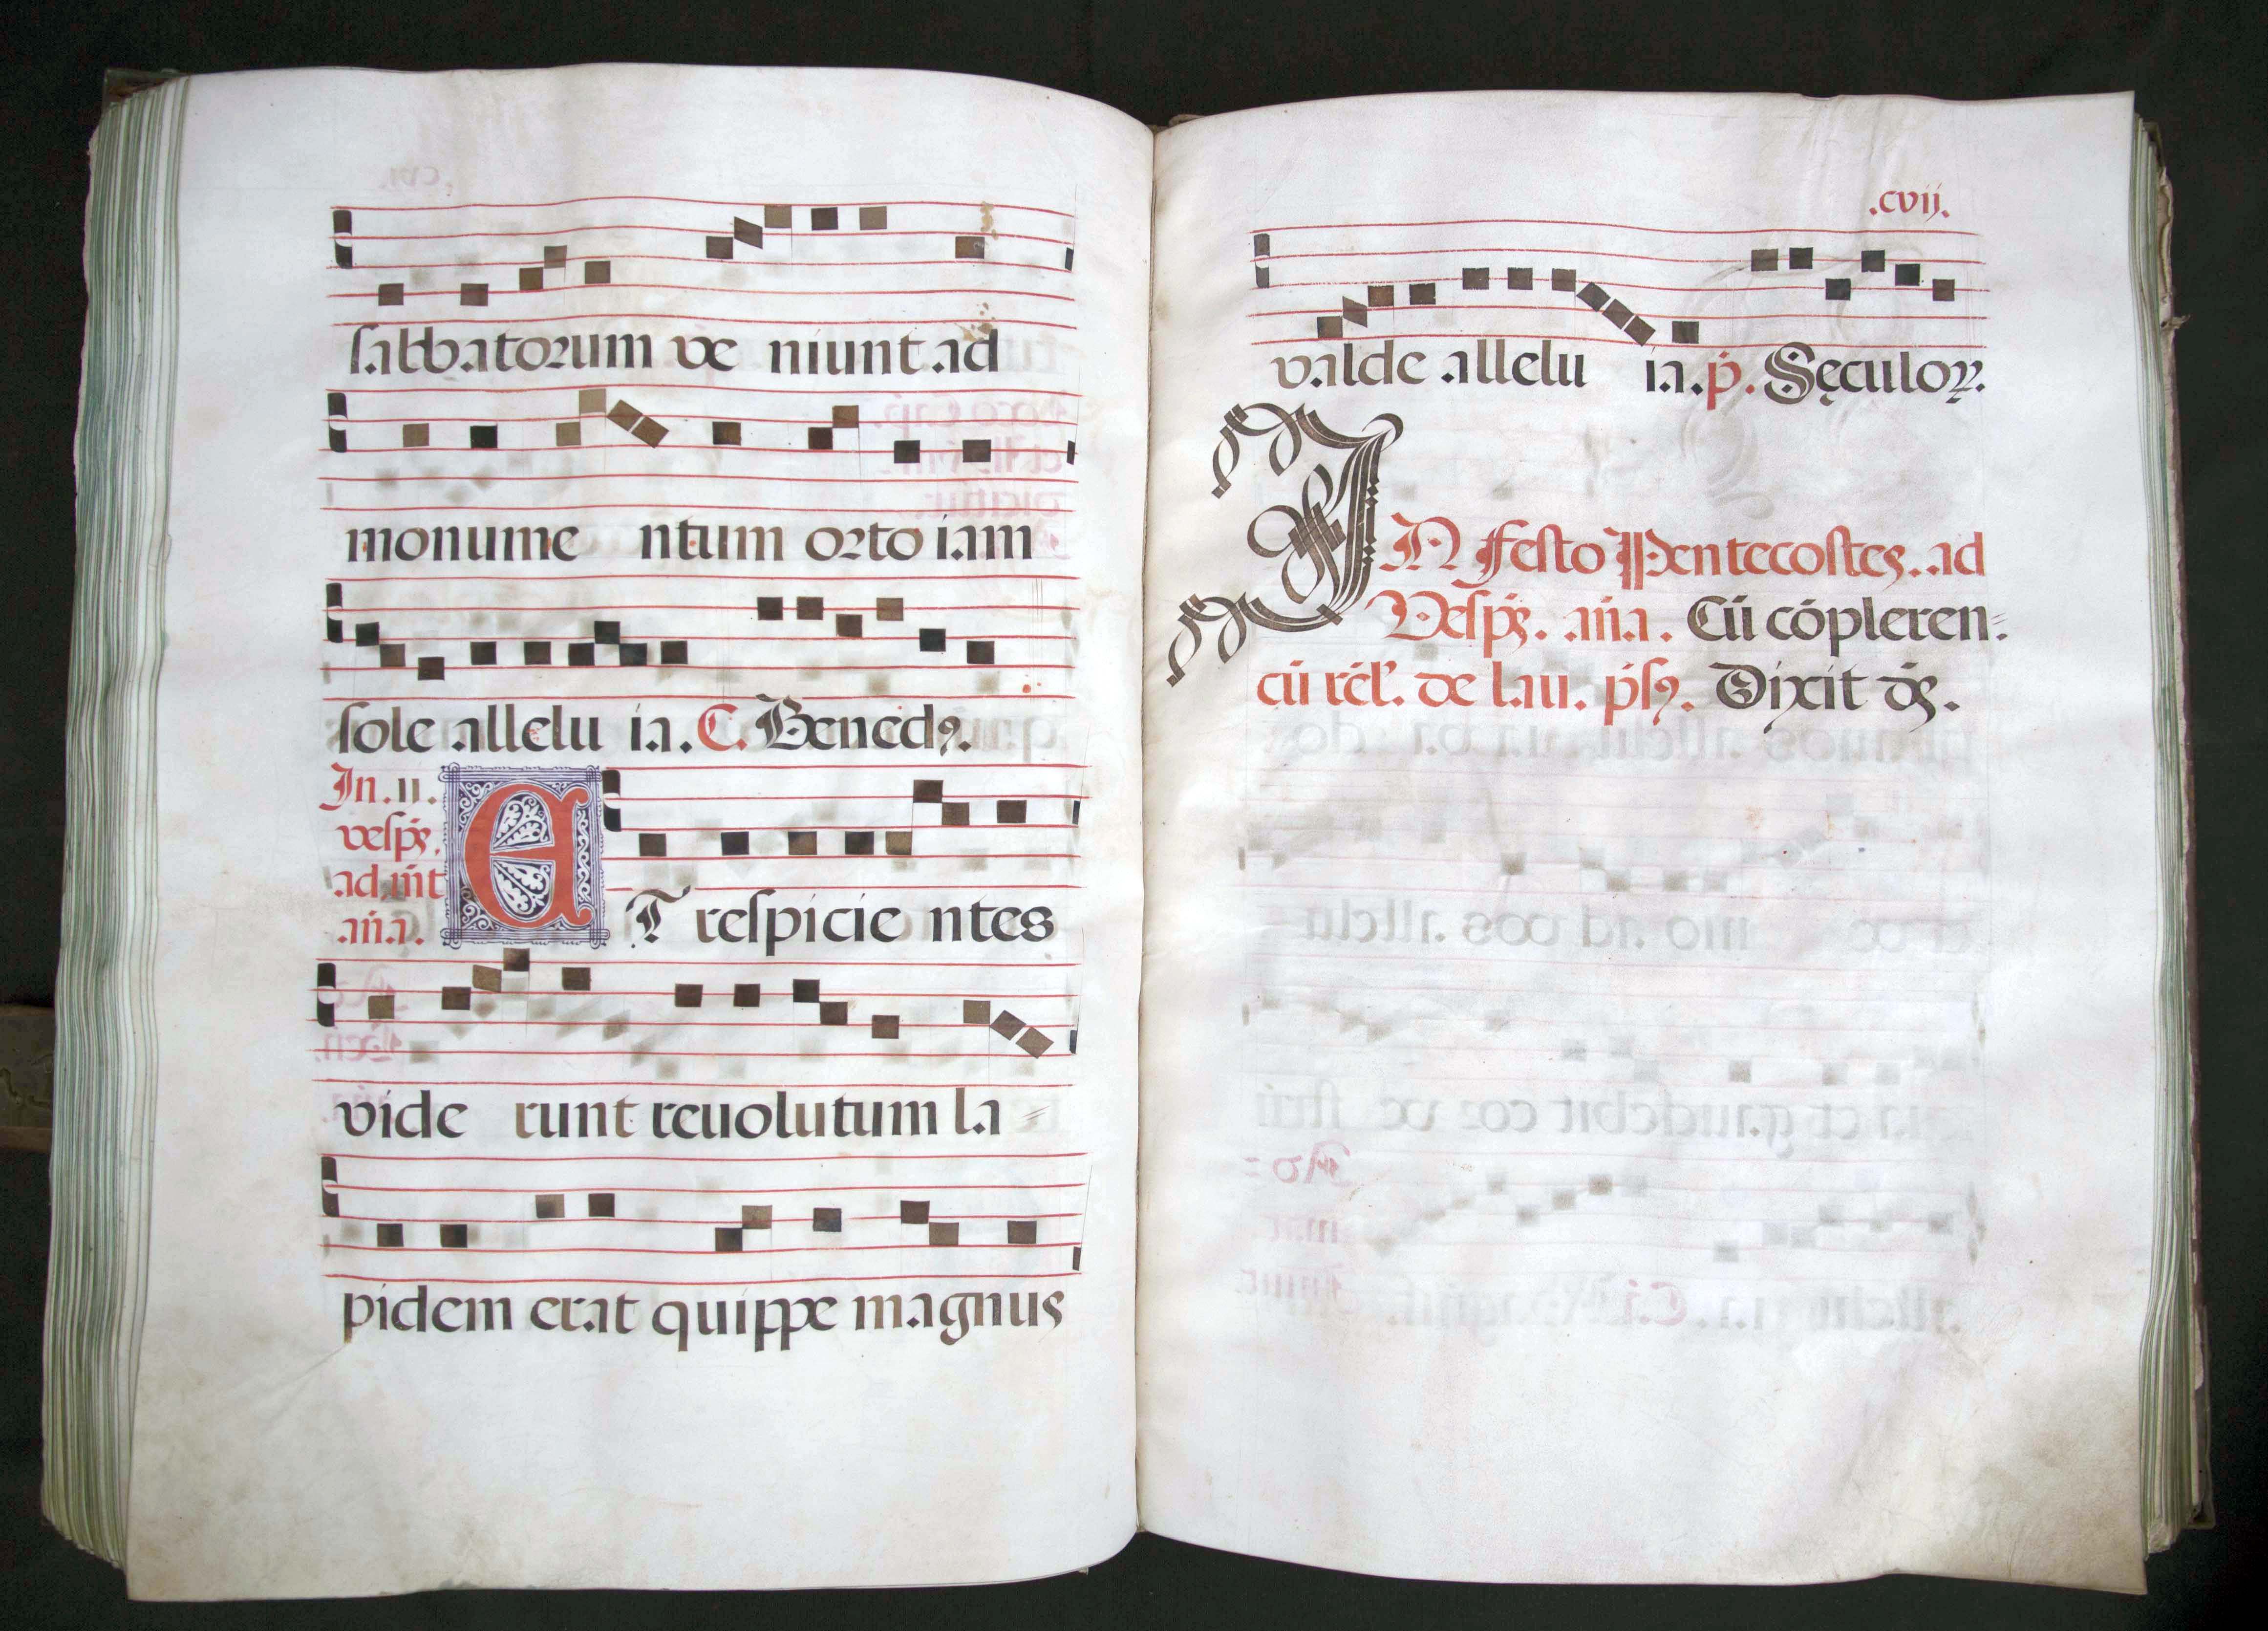 sabbatorum ve niunt ad
monume ntum orto iam
sole allelu ia. C. Bened9.
In .ii.
vesp̃s.
ad m̃t
añа.
ET respicie ntes
vide runt reuolutum la=
pidem erat quippe magnus
.cvij.
valde allelu ia. p̃. Sęculoꝝ.
IN festo Pentecostes. ad
Vesp̃s. añа. Cũ cõpleren=
cũ rel̃. de lau. p̃s9. Dixit ds̃.